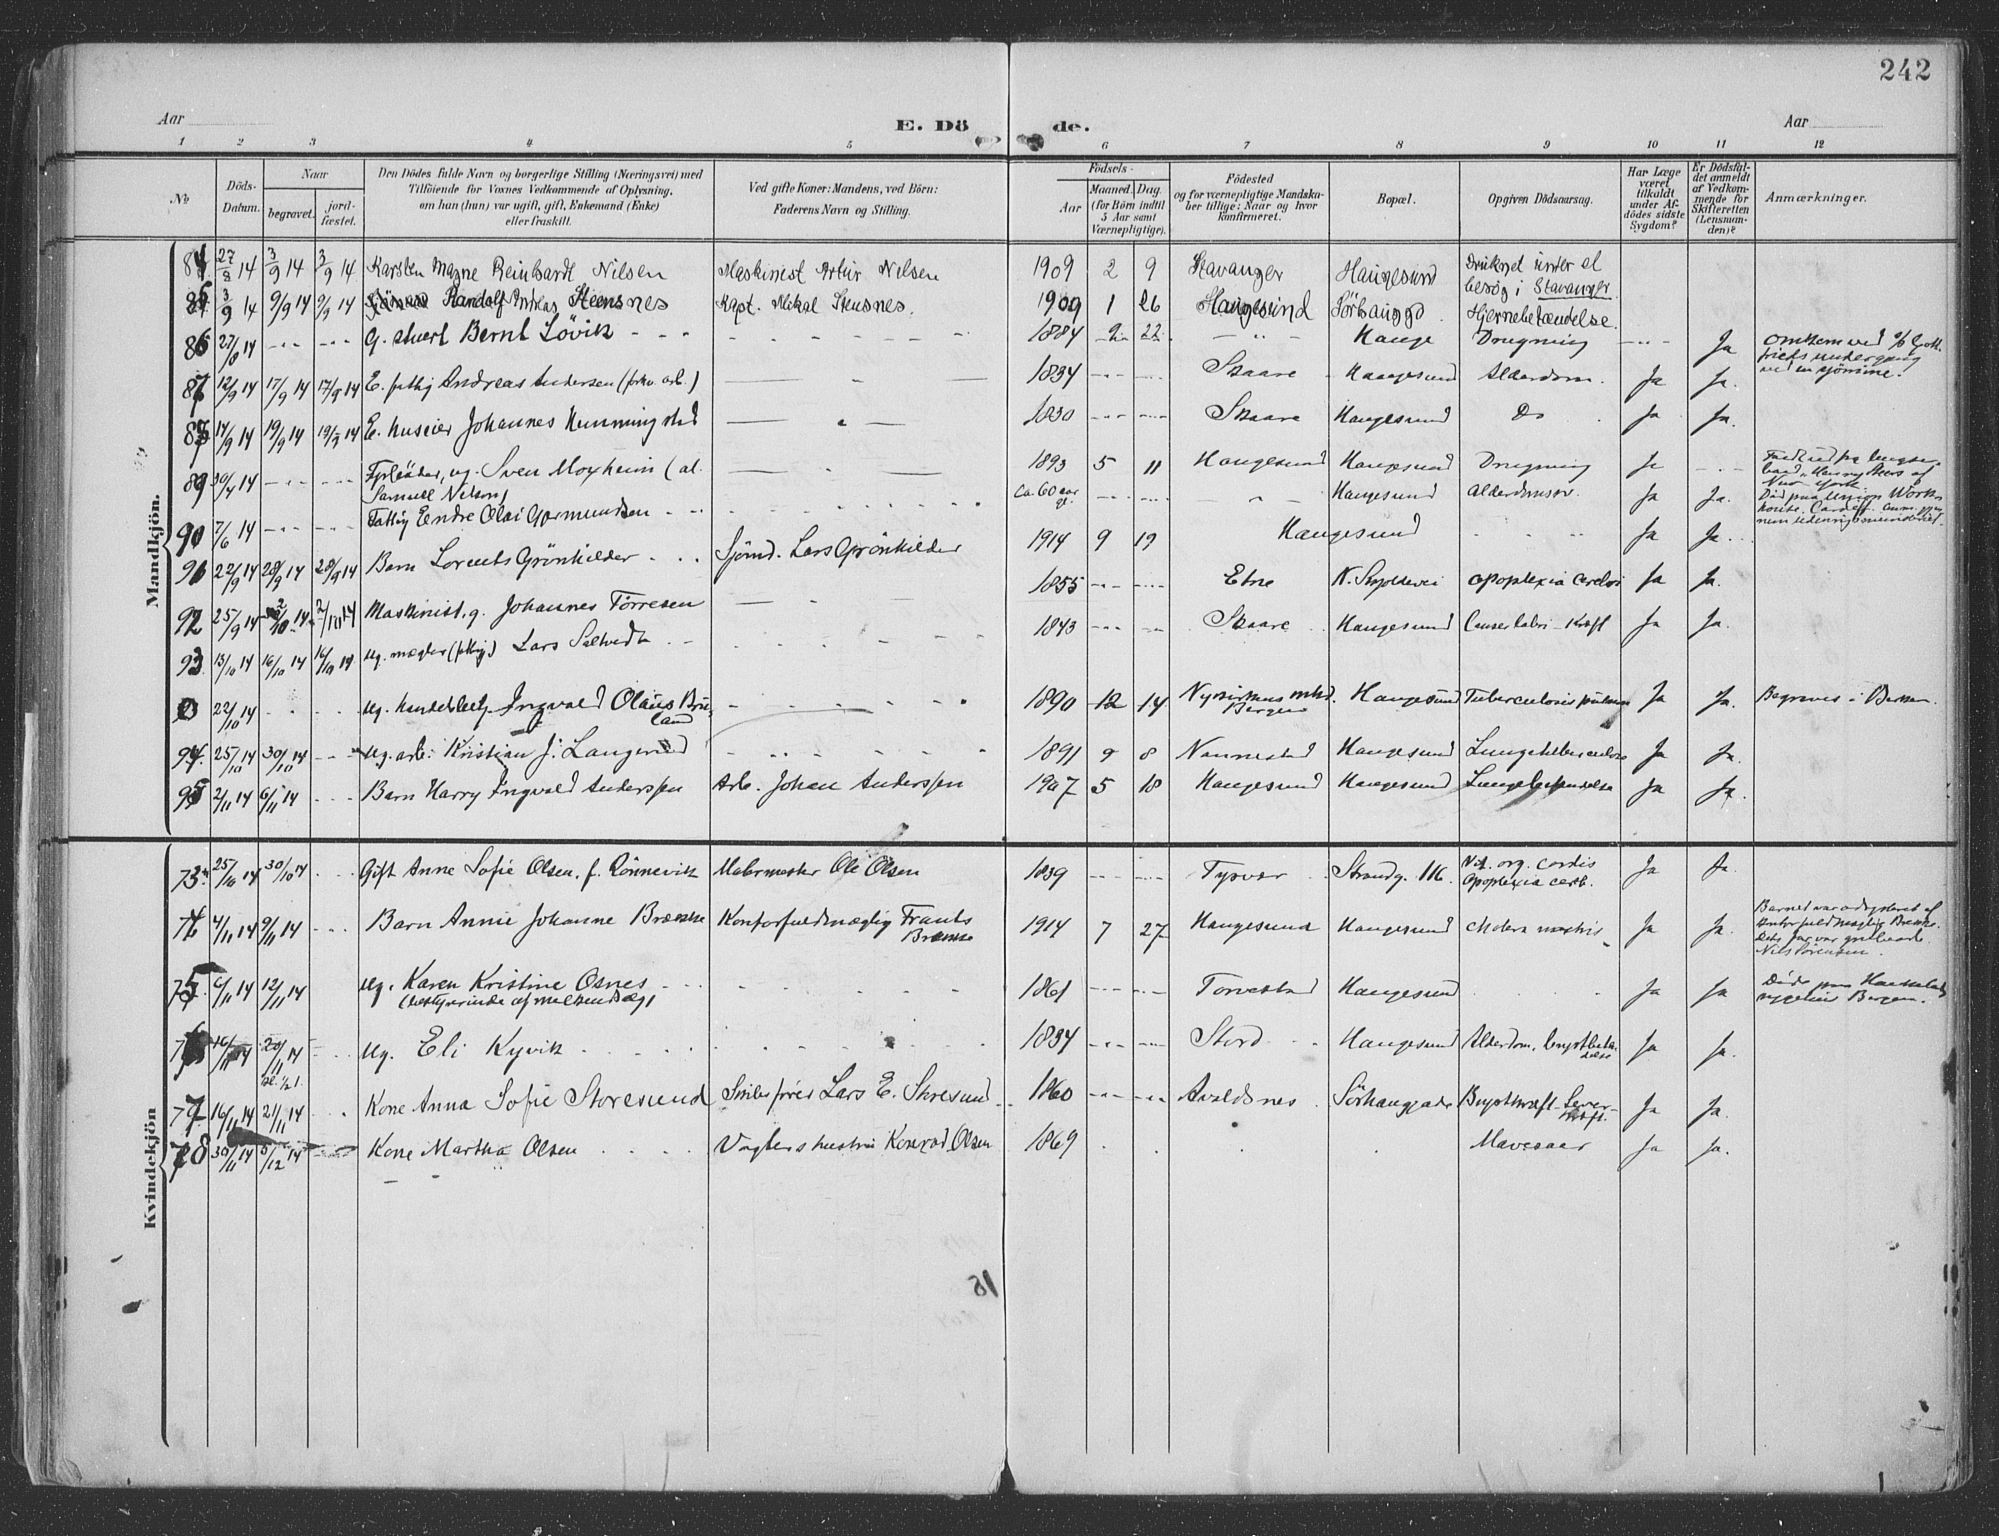 242
Aar
E. Dö de.
Aar
1 2 3 4 5 6 7 8 9 10 11 12
No
Döds-Datum.
Naar
begravet.
jord-fæstet.
Den Dödes fulde Navn og borgerlige Stilling (Næringsvei) med
Tilföiende for Voxnes Vedkommende af Oplysning,
om han (hun) var ugift, gift, Enkemand (Enke)
eller fraskilt.
Ved gifte Koner: Mandens, ved Börn:
Faderens Navn og Stilling.
Födsels-
Aar
Maaned. Dag.
(for Börn indtil
5 Aar samt
Værnepligtige).
Födested
og for værnepligtige Mandska-
ber tillige: Naar og hvor
konfirmeret.
Bopæl.
Opgiven Dödsaarsag.
Har Læge
været
tilkaldt
under Af-
dödes sidste
Sygdom?
Er Dödsfal-
det anmeldt
af Vedkom-
mende for
Skifteretten
(Lensman-
den)?
Anmærkninger.
Mandkjön.
84 27/8 14 3/9 14 3/9 14 Karsten Magne Reinhardt Nilsen Maskinist Artur Nilsen 1909 2 9 Stavanger Haugesund Druknet under et
besøg i Stavanger
3/9 14 9/9 14 9/9 14 Randolf Andreas Steensnes Kapt. Mikal Stensnes 1909 1 26 Haugesund Sørhauggd. Hjernebetændelse.
86 27/8 14 G. stuert Bernt Lövik 1884 2 22 - " - Hauge Drugning Ja Omkom ved
undergang
87 12/9 14 17/9 14 17/9 14 E. fattig Andreas Andersen (forhv. arb.) 1834 Skaare Haugesund Alderdom. Ja Ja.
14/9 14 19/9 14 19/9 14 E. huseier Johannes Hemmingstad 1830 Skaare Haugesund Do Ja Ja.
89 30/4 14 Fyrbøder, ug. Sven Moxheim (al.
Samuell Nilsen) 1893 5 11 Haugesund Haugesund Drugning Ja
90 7/6 14 Fattig Endre Olai Gormundsen Ca. 60 aar gl. Haugesund Alderdomssv. Ja Ja. Død paa Union Work-
house, Cardiff.
91 22/9 14 28/9 14 28/9 14 Barn Lorents Grönhilder Sjömd. Lars Grönhilder 1914 9 19 Haugesund Ja Ja
92 25/9 14 2/10 14 2/10 14 Maskinist, g. Johannes Törresen 1855 Etne apoplexia cerebri Ja Ja.
93 13/10 14 16/10 14 16/10 14 ug. mægler (fattig) Lars Saltvedt 1843 Skaare Haugesund Cancer labri - Kræft Ja Ja.
0 22/10 14 ug. handelsbetj. Ingvald Olaus Brü-
land 1890 12 14 Nykirkens mhd.
Bergen Haugesund Tuberculosis pulmon. Ja Ja. Begraves i Bergen.
94. 25/10 14 30/10 14 ug. arb. Kristian J. Langerud 1891 9 8 Nannestad Haugesund Lungetuberculose Ja Ja.
95 2/11 14 6/11 14 Barn Harry Ingvald Anderssen Arb. Johan Anderssen 1907 5 18 Haugesund Haugesund Lungebetændelse Ja Ja.
Kvindekjön
73. 25/10 14 30/10 14 Gift Anne Sofie Olsen, f. Rönnevik Malermester Ole Olsen 1839 Tysvær Strandg. 116. Vit. org. cordis
Apoplexia cerb. Ja Ja.
74 4/11 14 9/11 14 Barn Annie Johanne Brække Kontorfuldmægtig Frants
Brække 1914 7 27 Haugesund Haugesund Cholera nostris Ja Ja. Barnet var adopteret af
Kontorfuldmægtig Brække.
Dets far var
Nils Sørensen.
75. 6/11 14 12/11 14 ug. Karen Kristine Osnes
(bestyrerinde af melkeudsalg) 1861 Torvestad Haugesund Ja Ja Døde paa Haukeland
sygehus Bergen.
76 16/11 14 20/11 14 ug. Eli Kyvik 1834 Stord Haugesund Alderdom, Brystbetæn-
delse Ja Ja.
77 16/11 14 21/11 14 Kone Anna Sofie Storesund Skibsfører Lars E. Storesund 1860 Avaldsnes Sørhauggade Brystkræft - Lever-
kræft. Ja Ja.
78 30/11 14 5/12 14 Kone Martha Olsen Vagters hustru Konrad Olsen 1869 Mavesaar Ja Ja.